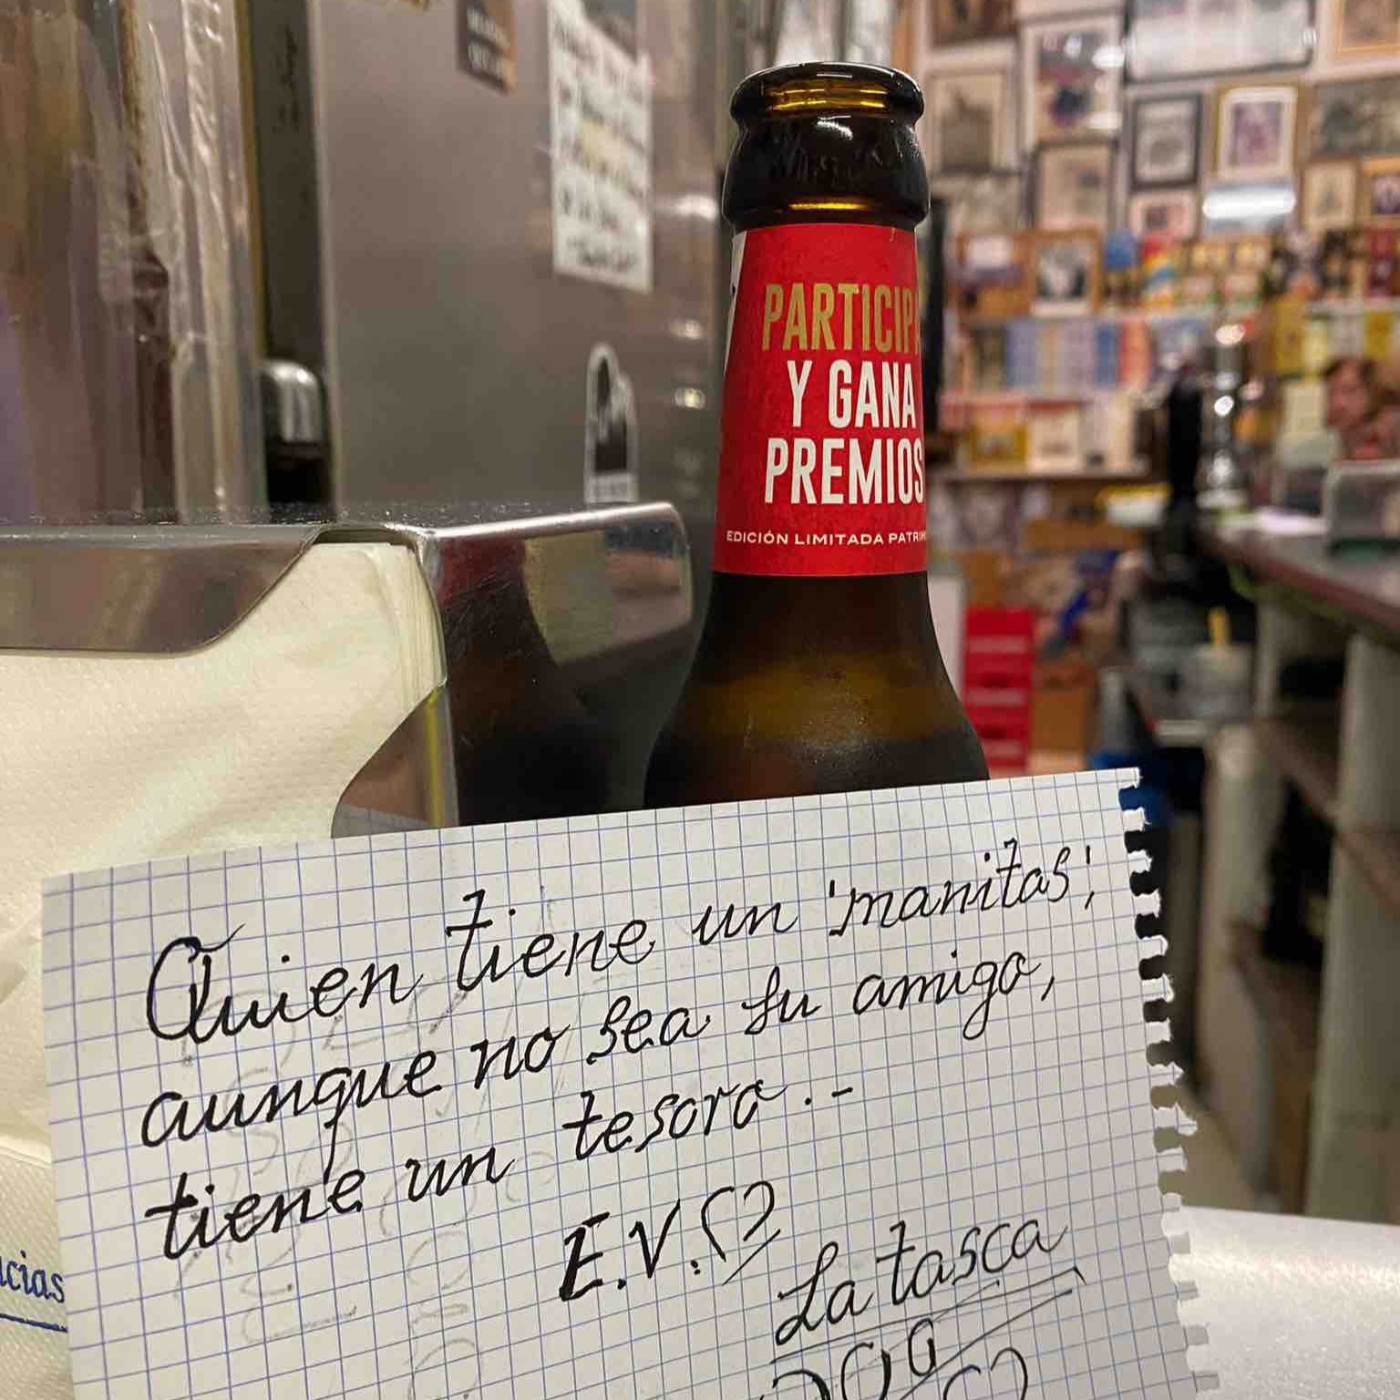 PARTICIPA
Y GANA
PREMIOS
EDICIÓN LIMITADA PATRIM
Quien tiene un 'manitas',
aunque no sea su amigo,
tiene un tesoro..-
E.V.
La tasca
cias